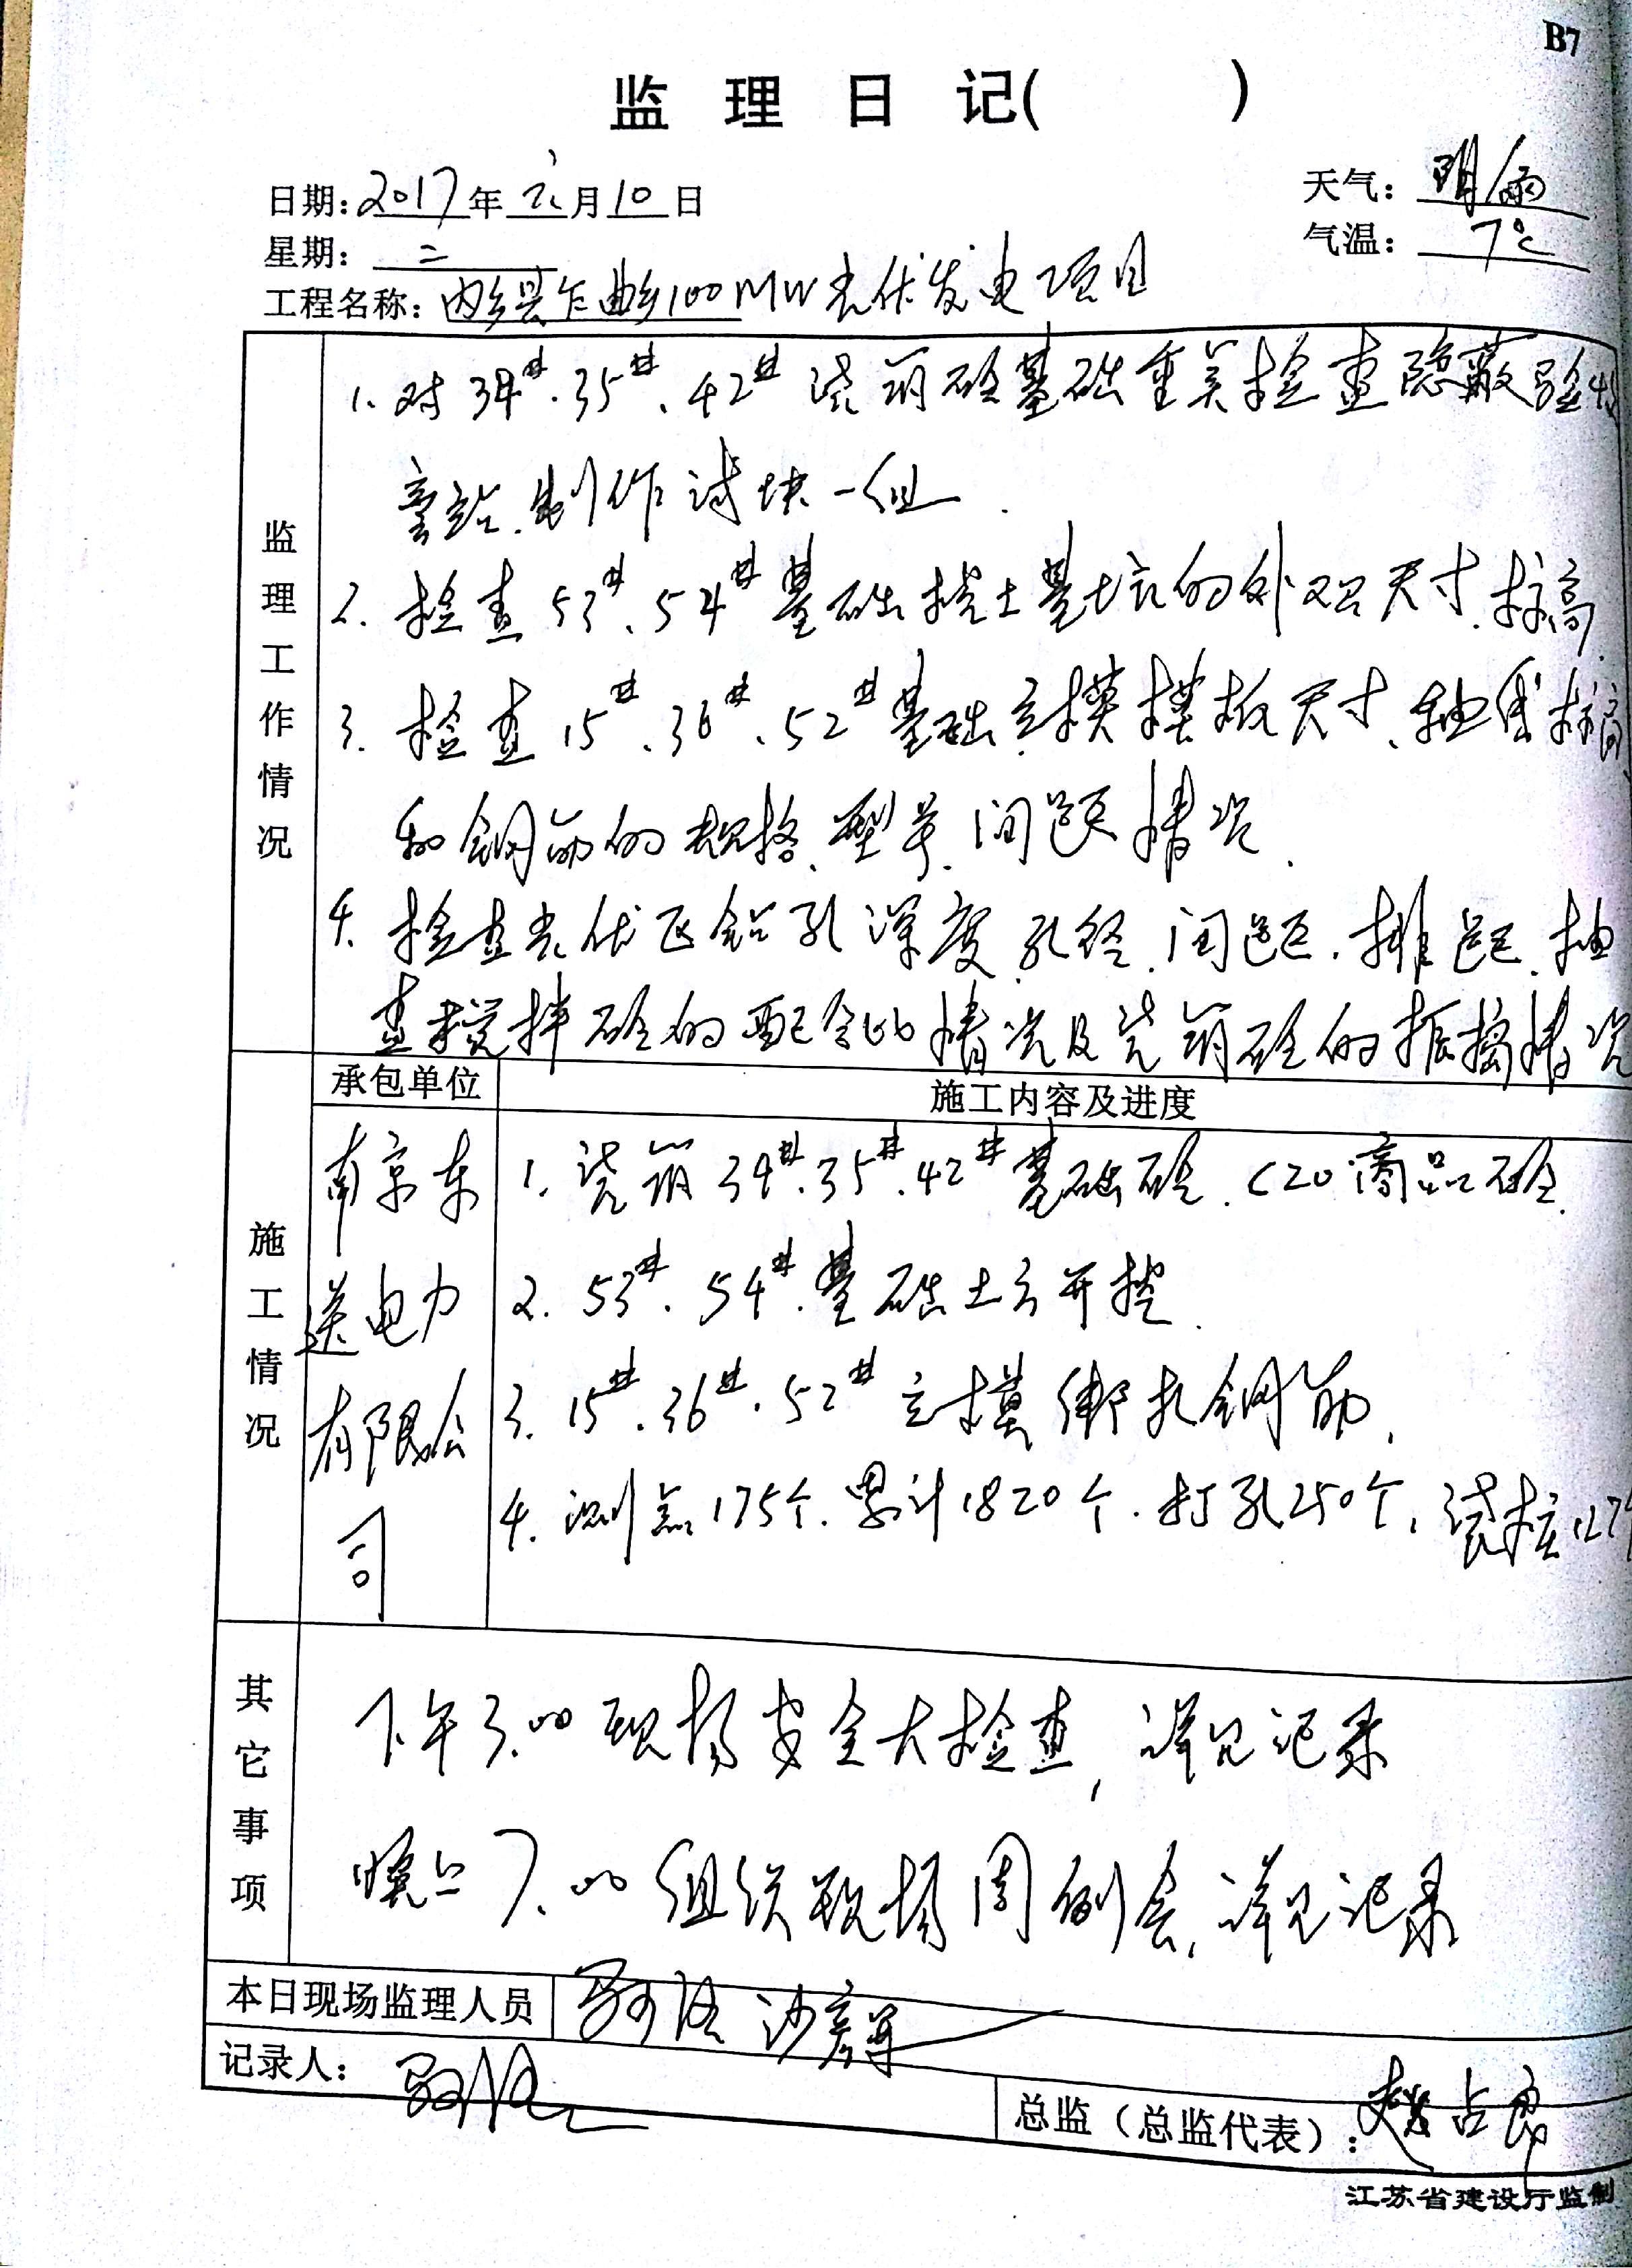 B7
监理日记( )
日期:2017年 月10日
天气: 阴/雨
星期: 二
气温: 7℃
工程名称: 内乡县乍曲乡100MW光伏发电项目
监理工作情况
1.对34#.35#、42#浇筑砼基础 检查隐蔽验收
旁站.制作试块一组.
2.检查53#、54#基础挖土基坑的外观尺寸.标高.
3.检查15#.36#.52#基础立模模板尺寸、轴线标高
和钢筋的规格、型号、间距情况.
4.检查光伏区钻孔深度.孔径.间距.排距.抽
查搅拌砼的配合比情况及浇筑砼的振捣情况
承包单位
施工内容及进度
施工情况
南京东
送电力
有限公
司
1.浇筑34#.35#.42#基础砼.C20商品砼.
2.53#.54#.基础土方开挖.
3.15#.36#.52#立模绑扎钢筋.
4.测点175个.累计1820个.打孔250个,
其它事项
下午3.00现场安全大检查,详见记录
晚上7.00组织现场周例会,详见记录
本日现场监理人员
沙彦军
记录人:
总监(总监代表): 赵占良
江苏省建设厅监制